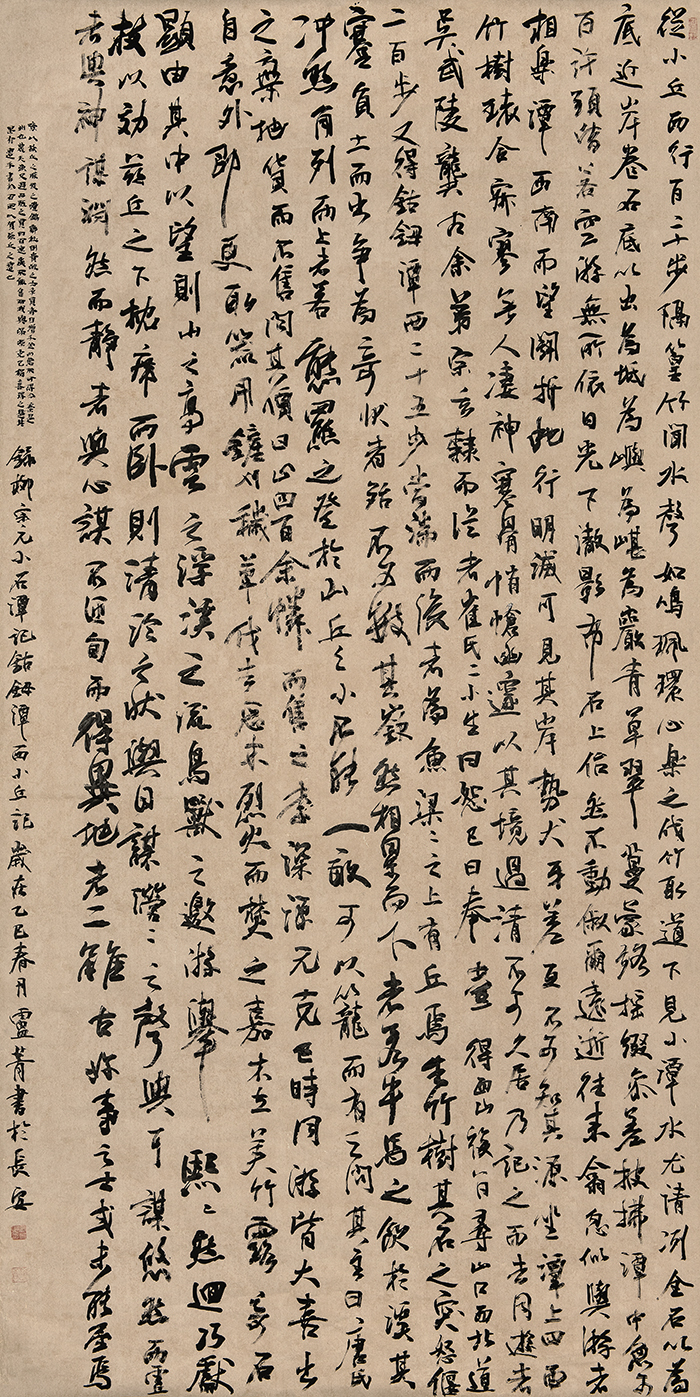 從小丘西行百二十步隔篁竹聞水聲如鳴珮環心樂之伐竹取道下見小潭水尤清冽全石以為
底近岸卷石底以出為坻為嶼為嵁為巖青草翠蔓蒙絡搖綴參差披拂潭中魚可
百許頭皆若空游無所依日光下澈影布石上佁然不動俶爾遠逝往來翕忽似與游者
相樂潭西南而望鬬折蛇行明滅可見其岸勢犬牙差互不可知其源坐潭上四面
竹樹環合寂寥無人凄神寒骨悄愴幽邃以其境過清不可久居乃記之而去同遊者
吳武陵龔古余弟宗玄隸而從者崔氏二小生曰恕已曰奉壹得西山後八日尋山口西北道
二百步又得鈷鉧潭西二十五步當湍而浚者為魚梁梁之上有丘焉生竹樹其石之突怒偃
蹇負土而出爭為奇狀者殆不可數其嶔然相累而下者若牛馬之飲於溪其
沖然角列而上者若熊羆之登於山丘之小不能一畝可以籠而有之問其主曰唐氏
之棄地貨而不售問其價曰止四百余憐而售之李深源元克己時同游皆大喜出
自意外即更取器用鏟刈穢草伐去惡木烈火而焚之嘉木立美竹露奇石
顯由其中以望則山之高雲之浮溪之流鳥獸之遨游舉熙熙然迴巧獻
技以效茲丘之下枕席而臥則清泠之狀與目謀瀯瀯之聲與耳謀悠然而虛
者與神謀淵然而靜者與心謀不匝旬而得異地者二雖古好事之士或未能至焉
錄柳宗元小石潭記鈷鉧潭西小丘記歲在乙巳春月盧菁書於長安